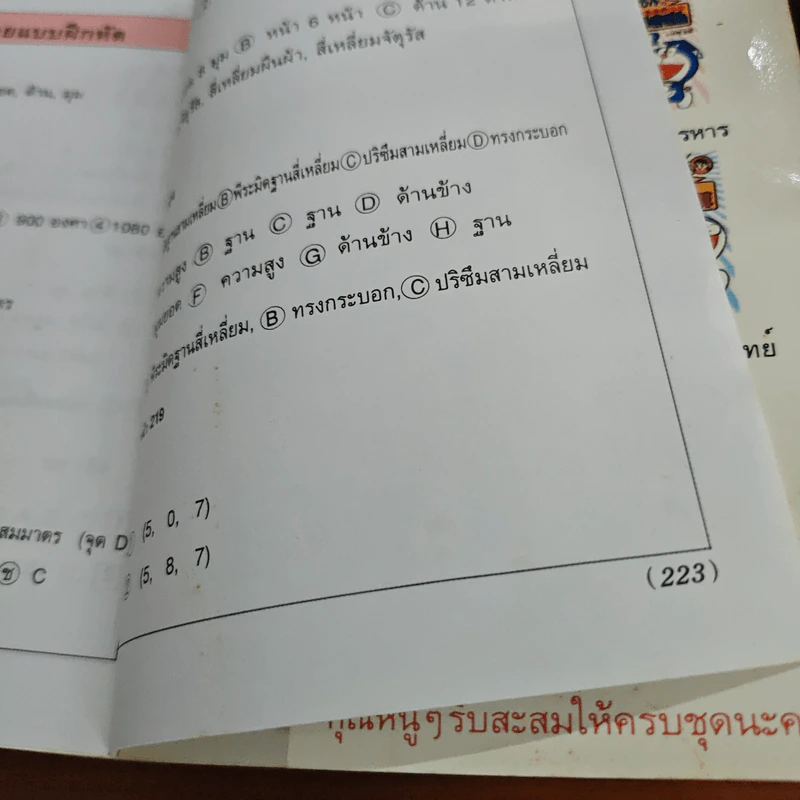 ยแบบฝึกหัด
ด้าน, มุม
900 องศา ④ 1080
สมมาตร (จุด D)
ช C
มุม Ⓑ หน้า 6 หน้า Ⓒ ด้าน 12
สี่เหลี่ยมผืนผ้า, สี่เหลี่ยมจัตุรัส
สามเหลี่ยม Ⓑ พีระมิดฐานสี่เหลี่ยม Ⓒ ปริซึมสามเหลี่ยม Ⓓ ทรงกระบอก
Ⓑ ฐาน Ⓒ ฐาน Ⓓ ด้านข้าง
Ⓕ ความสูง Ⓖ ด้านข้าง Ⓗ ฐาน
ฐานสี่เหลี่ยม, Ⓑ ทรงกระบอก, Ⓒ ปริซึมสามเหลี่ยม
219
(5, 0, 7)
(5, 8, 7)
(223)
รหาร
ทย์
คุณหนูๆ รีบสะสมให้ครบชุดนะค